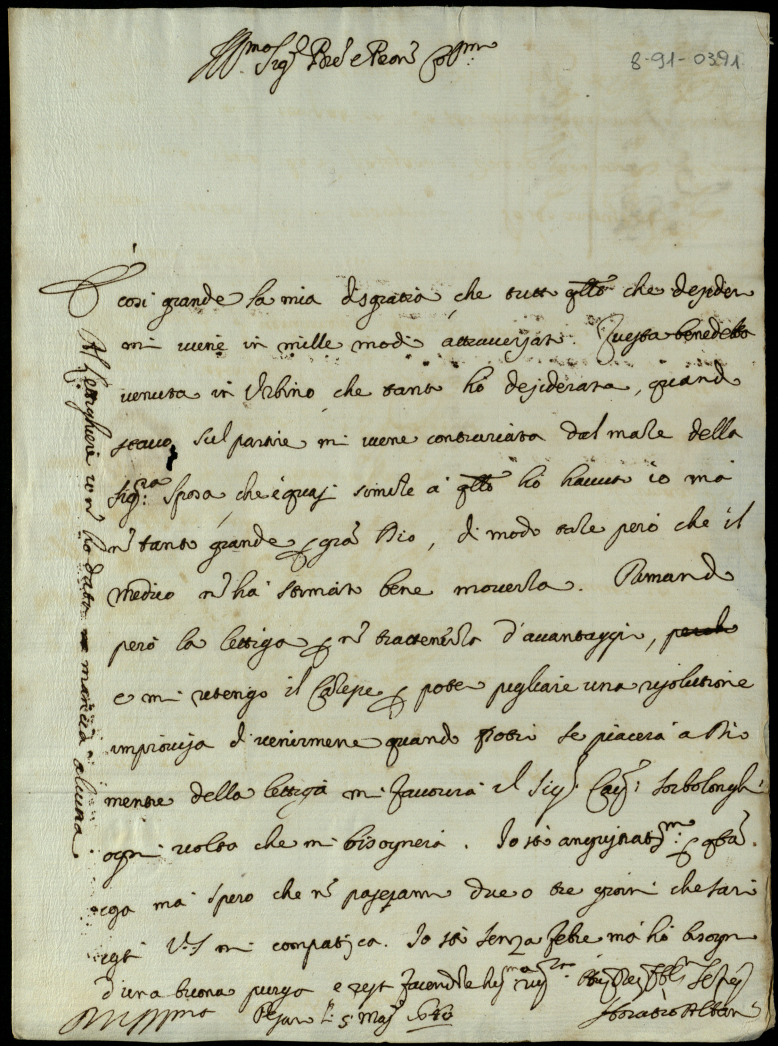 Ill.mo Sig.r Pre e Pron Col.mo
8-91-0391
È cosi grande la mia disgratia che tutto qllo che desidero
mi viene in mille modi attraversato. Questa benedetta
venuta in Urbino che tanto ho desiderata, quando
stavo sul partire mi viene contrariata dal male della
Sig.ra Sposa che è quasi simile a qllo ho havuto io ma
nō tanto grande gra Dio, di modo tale però che il
Medico nō ha stimato bene moverla. Rimando
però la lettiga p nō trattenerla d'avantaggio,
e mi ritengo il Calesse p poter pigliare una risolutione
improvisa di venirmene quando potrò se piacerà a Dio
mentre della lettiga mi favorirà il Sig.r Cav.r Sorbolonghi
ogni volta che mi bisognerà. Io stò angustiatiss.mo p qsta
cosa ma spero che nō passeranno due o tre giorni che sarò
costì V.S. mi compatisca. Io stò senza febre ma hò bisogno
d'una buona purga e resto facendole hum.ma riv.za
Pesaro li 5 Mag.
Horatio Albani
Al lettighiere io nō ho dato mancia alcuna